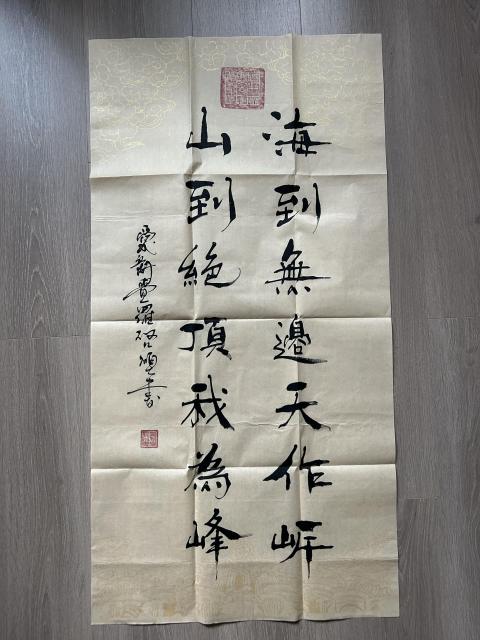 海到無邊天作岸
山到絶頂我為峰
愛新覺羅書